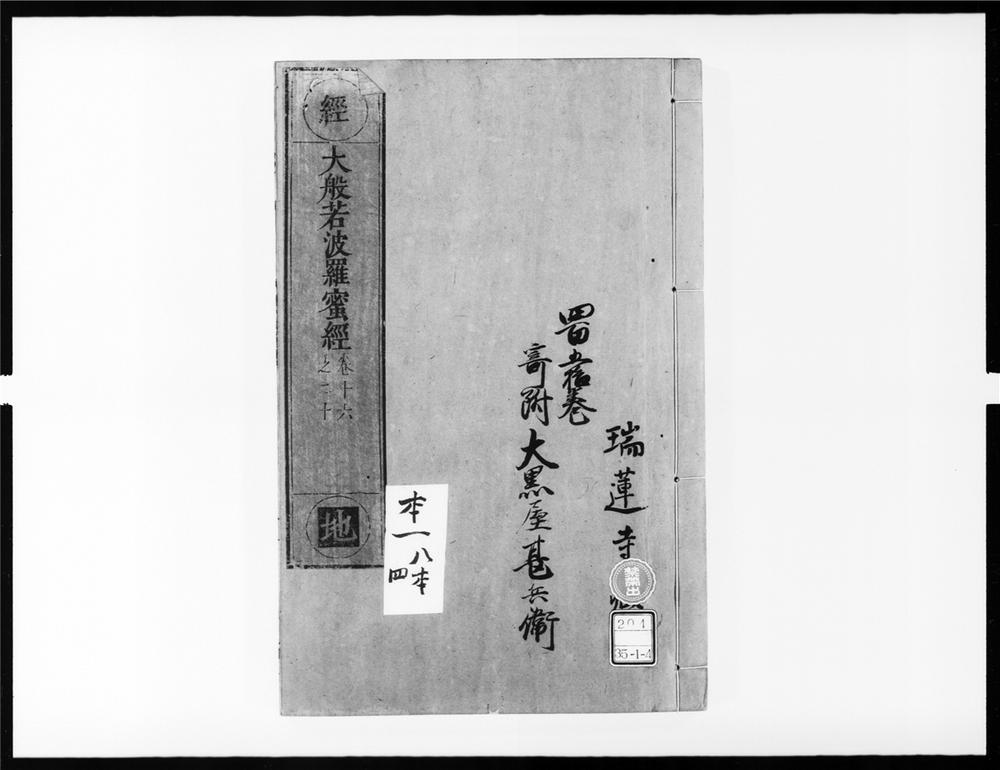 瑞蓮寺
五拾卷
寄附大黒屋甚兵衛
經
大般若波羅蜜經
卷十六
之二十
地
本一八本
四
禁帶出
204
35-1-4